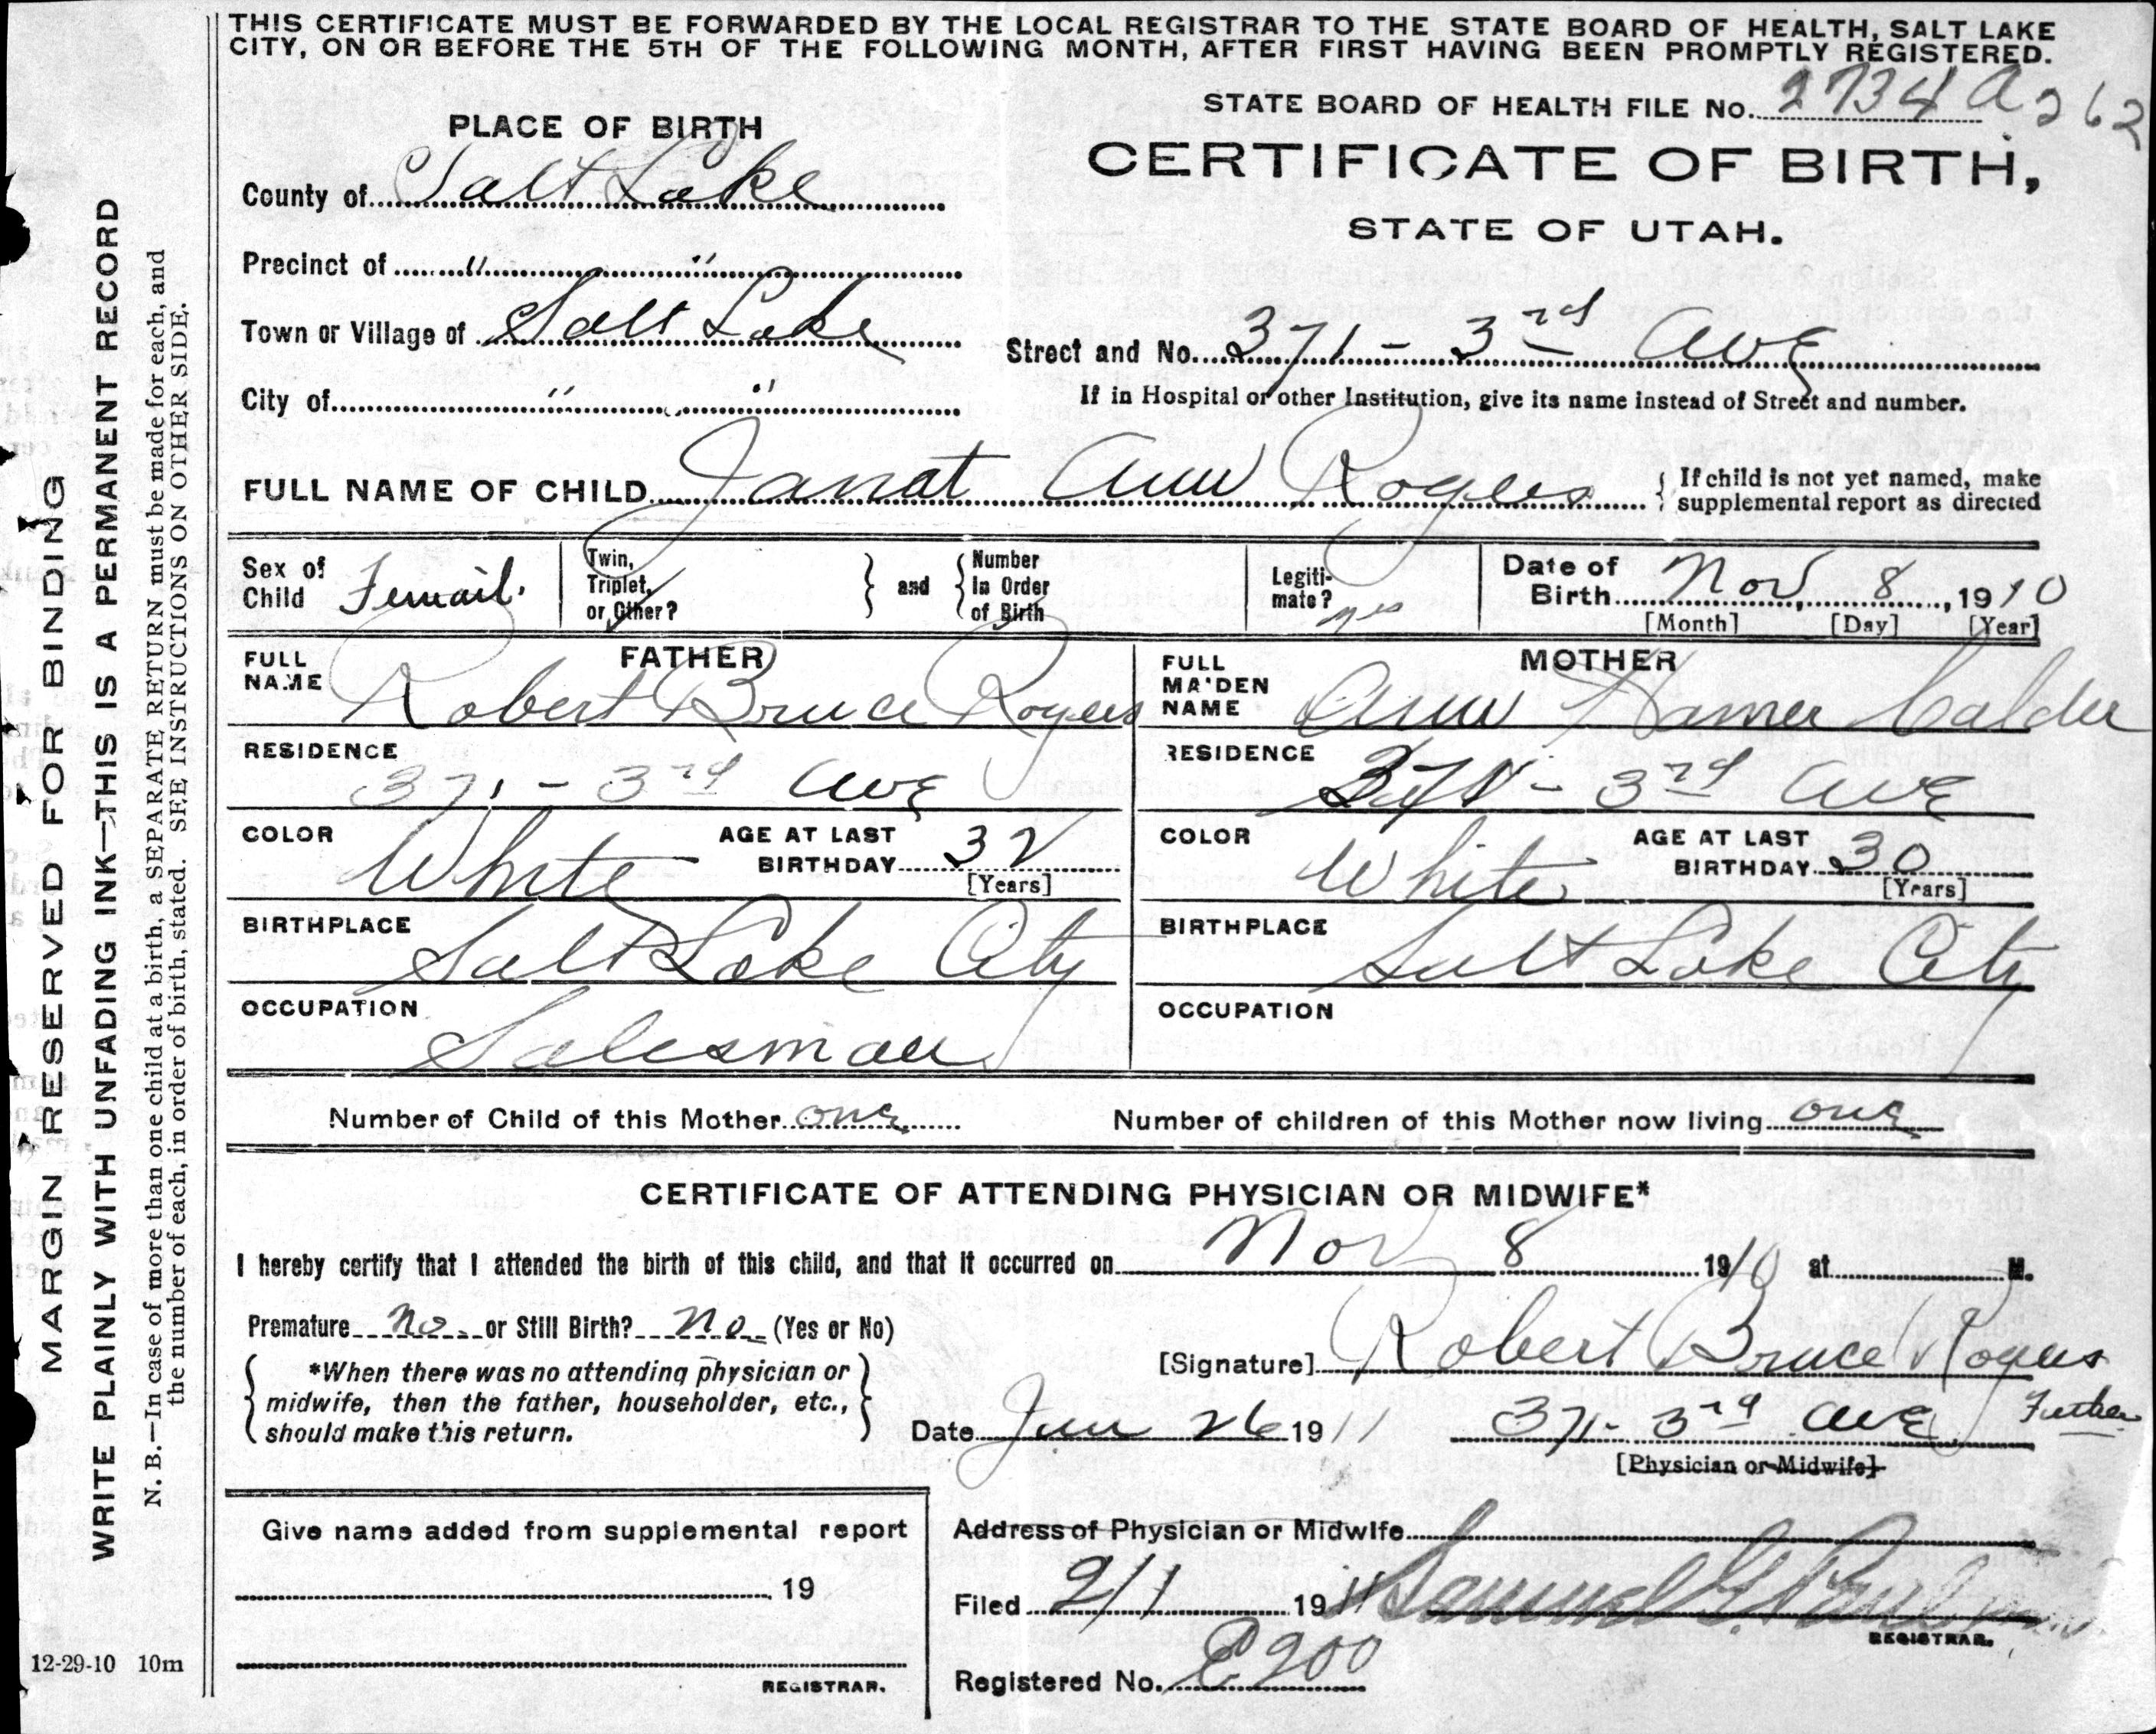 THIS CERTIFICATE MUST BE FORWARDED BY THE LOCAL REGISTRAR TO THE STATE BOARD OF HEALTH, SALT LAKE
CITY, ON OR BEFORE THE 5TH OF THE FOLLOWING MONTH, AFTER FIRST HAVING BEEN PROMPTLY REGISTERED.
STATE BOARD OF HEALTH FILE No. 2734 a 262
PLACE OF BIRTH
CERTIFICATE OF BIRTH,
STATE OF UTAH.
County of Salt Lake
Precinct of " "
Town or Village of Salt Lake
Street and No. 371 - 3rd Ave
City of " "
If in Hospital or other Institution, give its name instead of Street and number.
FULL NAME OF CHILD Janat Ann Rogers { If child is not yet named, make
supplemental report as directed
Sex of Child Femail.
Twin, Triplet, or Other? } and { Number In Order of Birth
Legiti-mate? yes
Date of Birth Nov, 8, 1910
[Month] [Day] [Year]
FATHER
FULL NAME Robert Bruce Rogers
RESIDENCE 371 - 3rd Ave
COLOR White
AGE AT LAST BIRTHDAY 32
[Years]
BIRTHPLACE Salt Lake City
OCCUPATION Salesman
MOTHER
FULL MAIDEN NAME Ann Hamer Calder
RESIDENCE 371 - 3rd Ave
COLOR White
AGE AT LAST BIRTHDAY 30
[Years]
BIRTHPLACE Salt Lake City
OCCUPATION
Number of Child of this Mother one
Number of children of this Mother now living one
CERTIFICATE OF ATTENDING PHYSICIAN OR MIDWIFE*
I hereby certify that I attended the birth of this child, and that it occurred on Nov 8 1910 at M.
Premature No or Still Birth? No (Yes or No)
*When there was no attending physician or
midwife, then the father, householder, etc.,
should make this return.
[Signature] Robert Bruce Rogers
Father
Date Jan 26 1911 371 - 3rd Ave
[Physician or Midwife]
Give name added from supplemental report
19
REGISTRAR.
Address of Physician or Midwife
Filed 2/1 1911 Samuel G. Paul
REGISTRAR.
Registered No. E900
12-29-10 10m
MARGIN RESERVED FOR BINDING
WRITE PLAINLY WITH UNFADING INK—THIS IS A PERMANENT RECORD
N. B.—In case of more than one child at a birth, a SEPARATE RETURN must be made for each, and
the number of each, in order of birth, stated. SEE INSTRUCTIONS ON OTHER SIDE.